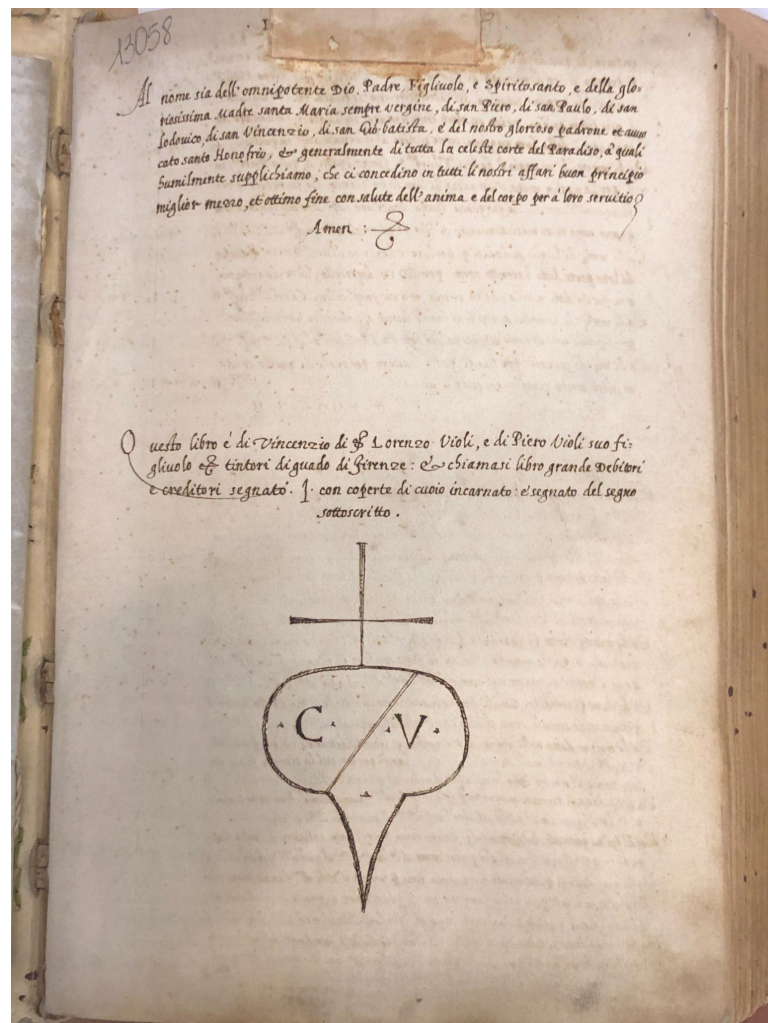 13058
Al nome sia dell'omnipotente Dio, Padre, Figliuolo, e Spiritosanto, e della glo=
riosissima Madre santa Maria sempre vergine, di san Piero, di san Paulo, di san
Lodovico, di san Vincenzio, di san Gio: batista, e del nostro glorioso padrone et auuo
cato santo Honofrio, & generalmente di tutta la celeste corte del Paradiso, a' quali
humilmente supplichiamo, che ci concedino in tutti li nostri affari buon principio
miglior mezzo, et ottimo fine con salute dell'anima e del corpo per a' loro seruitio
Amen :
Questo libro é di Vincenzio di Lorenzo Violi, e di Piero Violi suo fi=
gliuolo tintori di guado di Firenze : & chiamasi libro grande Debitori
e creditori segnato. I. con coperte di cuoio incarnato : e segnato del segno
sottoscritto .
C V